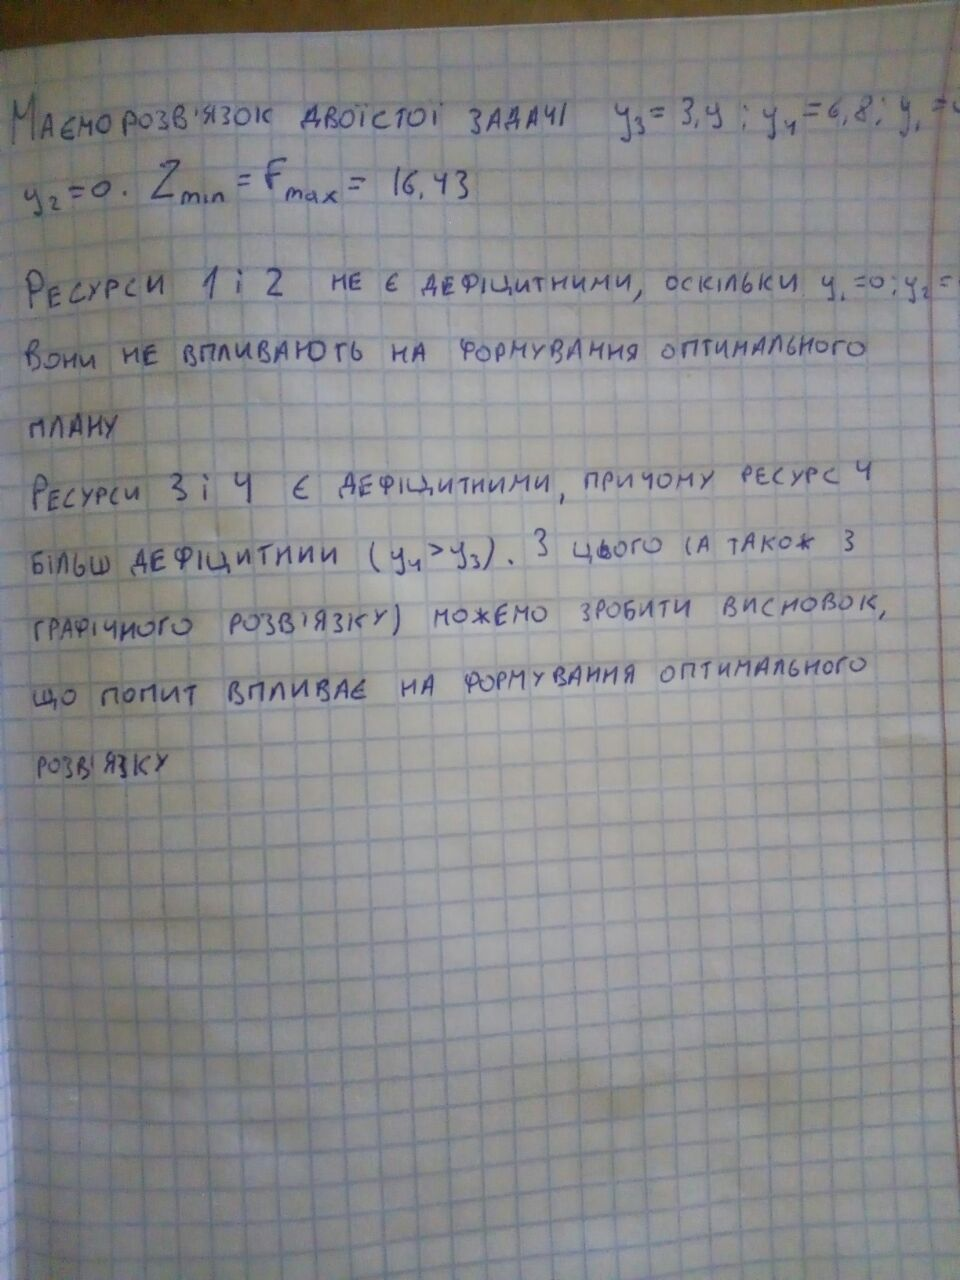 Маємо розв'язок двоїстої задачі y₃ = 3,4; y₄ = 6,8; y₁ =
y₂ = 0. Zmin = Fmax = 16,43
Ресурси 1 і 2 не є дефіцитними, оскільки y₁ = 0; y₂ =
Вони не впливають на формування оптимального
плану
Ресурси 3 і 4 є дефіцитними, причому ресурс 4
більш дефіцитний (y₄ > y₃). З цього (а також з
графічного розв'язку) можемо зробити висновок,
що попит впливає на формування оптимального
розв'язку